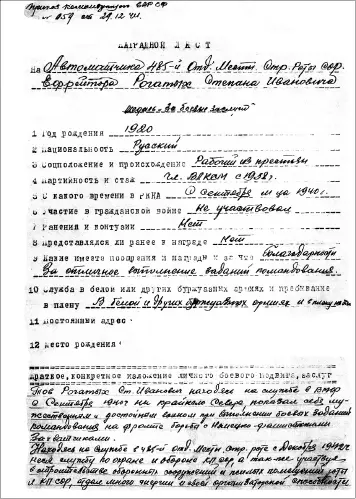 № 054 от 29.12.42.
НАГРАДНОЙ ЛИСТ
На Автоматчика 485-й Отд. Местн. Стр. Роты СОР.
Ефрейтора Рогатых Степана Ивановича
медаль "За боевые заслуги"
1 Год рождения 1920
2 Национальность Русский
3 Соцположение и происхождение Рабочий из крестьян
4 Партийность и стаж чл. ВЛКСМ с 1938 г.
5 С какого времени в РККА С сентября м-ца 1940 г.
6 Участие в гражданской войне Не участвовал
7 Ранения и контузии Нет
8 Представлялся ли ранее к награде Нет
9 Какие имеет поощрения и награды и за что Благодарности
За отличное выполнение заданий командования.
10 Служба в белой или других буржуазных армиях и пребывание
в плену В белой и других буржуазных армиях и в плену не
11 Постоянный адрес
12 Место рождения
Краткое, конкретное изложение личного боевого подвига, заслуг
Тов Рогатых Ст. Иванович находясь на службе в
с Сентября 1940 г на крайнем Севере показал себя
мужественным и достойным воином при выполнении боевых заданий
командования на фронте борьбы с Немецко-фашистскими
Захватчиками.
Находясь на службе в 485-й отд. Местн. Стр. роте с Декабря 1942 г
неся службу по охране и обороне КП СОР а так-же участвуя
в строительстве оборонит. сооружений и жилых помещений
КП СОР отдал много энергии и своей организаторской способности